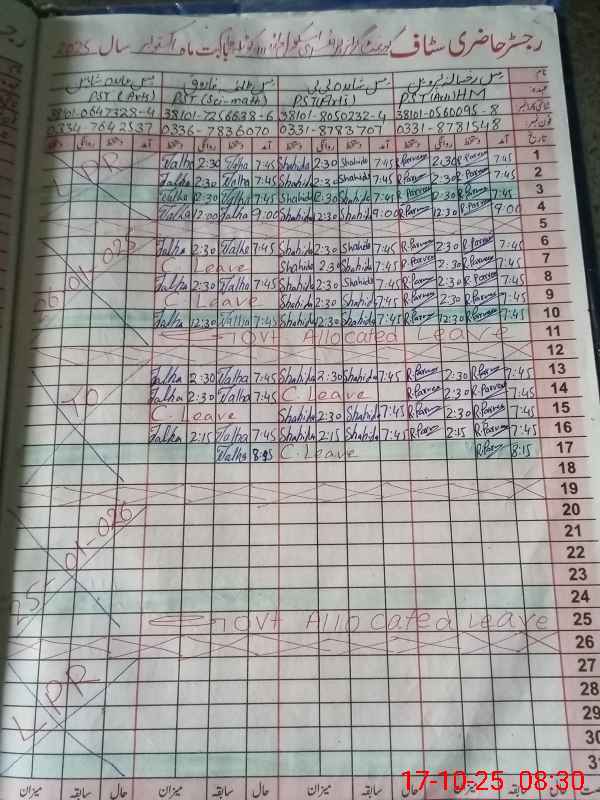 رجسٹر حاضری سٹاف گورنمنٹ گرلز پرائمری سکول بابت ماہ اکتوبر سال 2025
نام
عہدہ PST (Arts) HM PST (Arts) PST (Sci-math) PST (Arts)
شناختی کارڈ نمبر 38101-0560095-8 38101-8050232-4 38101-7256638-6 38101-0647328-4
فون نمبر 0331-8781548 0331-8783707 0336-7836070 0334-7642537
تاریخ آمد دستخط روانگی دستخط آمد دستخط روانگی دستخط آمد دستخط روانگی دستخط آمد دستخط روانگی دستخط
Talha 2:30 Talha 7:45 Shahida 2:30 Shahida 7:45 R.Parveen 2:30 R.Parveen 7:45 1
Talha 2:30 Talha 7:45 Shahida 2:30 Shahida 7:45 R.Parveen 2:30 R.Parveen 7:45 2
Talha 2:30 Talha 7:45 Shahida 2:30 Shahida 7:45 R.Parveen 2:30 R.Parveen 7:45 3
Talha 12:00 Talha 9:00 Shahida 2:30 Shahida 9:00 R.Parveen 12:30 R.Parveen 9:00 4
5
Talha 2:30 Talha 7:45 Shahida 2:30 Shahida 7:45 R.Parveen 2:30 R.Parveen 7:45 6
Leave Shahida 2:30 Shahida 7:45 R.Parveen 2:30 R.Parveen 7:45 7
Talha 2:30 Talha 7:45 Shahida 2:30 Shahida 7:45 R.Parveen 2:30 R.Parveen 7:45 8
C. Leave Shahida 2:30 Shahida 7:45 R.Parveen 2:30 R.Parveen 7:45 9
Talha 12:30 Talha 7:45 Shahida 12:30 Shahida 7:45 R.Parveen 12:30 R.Parveen 7:45 10
Govt Allocated Leave 11
12
Talha 2:30 Talha 7:45 Shahida 2:30 Shahida 7:45 R.Parveen 2:30 R.Parveen 7:45 13
Talha 2:30 Talha 7:45 C. Leave R.Parveen 2:30 R.Parveen 7:45 14
C. Leave Shahida 2:30 Shahida 7:45 R.Parveen 2:30 R.Parveen 7:45 15
Talha 2:15 Talha 7:45 Shahida 2:15 Shahida 7:45 R.Parveen 2:15 R.Parveen 7:45 16
Talha C. Leave R.Parveen 8:15 17
18
19
20
21
22
23
24
Govt Allocated Leave 25
26
27
28
29
30
31
LPR
01-025
TO
01-026
LPR
حال سابقہ میزان حال سابقہ میزان حال سابقہ میزان حال سابقہ میزان
17-10-25 08:30